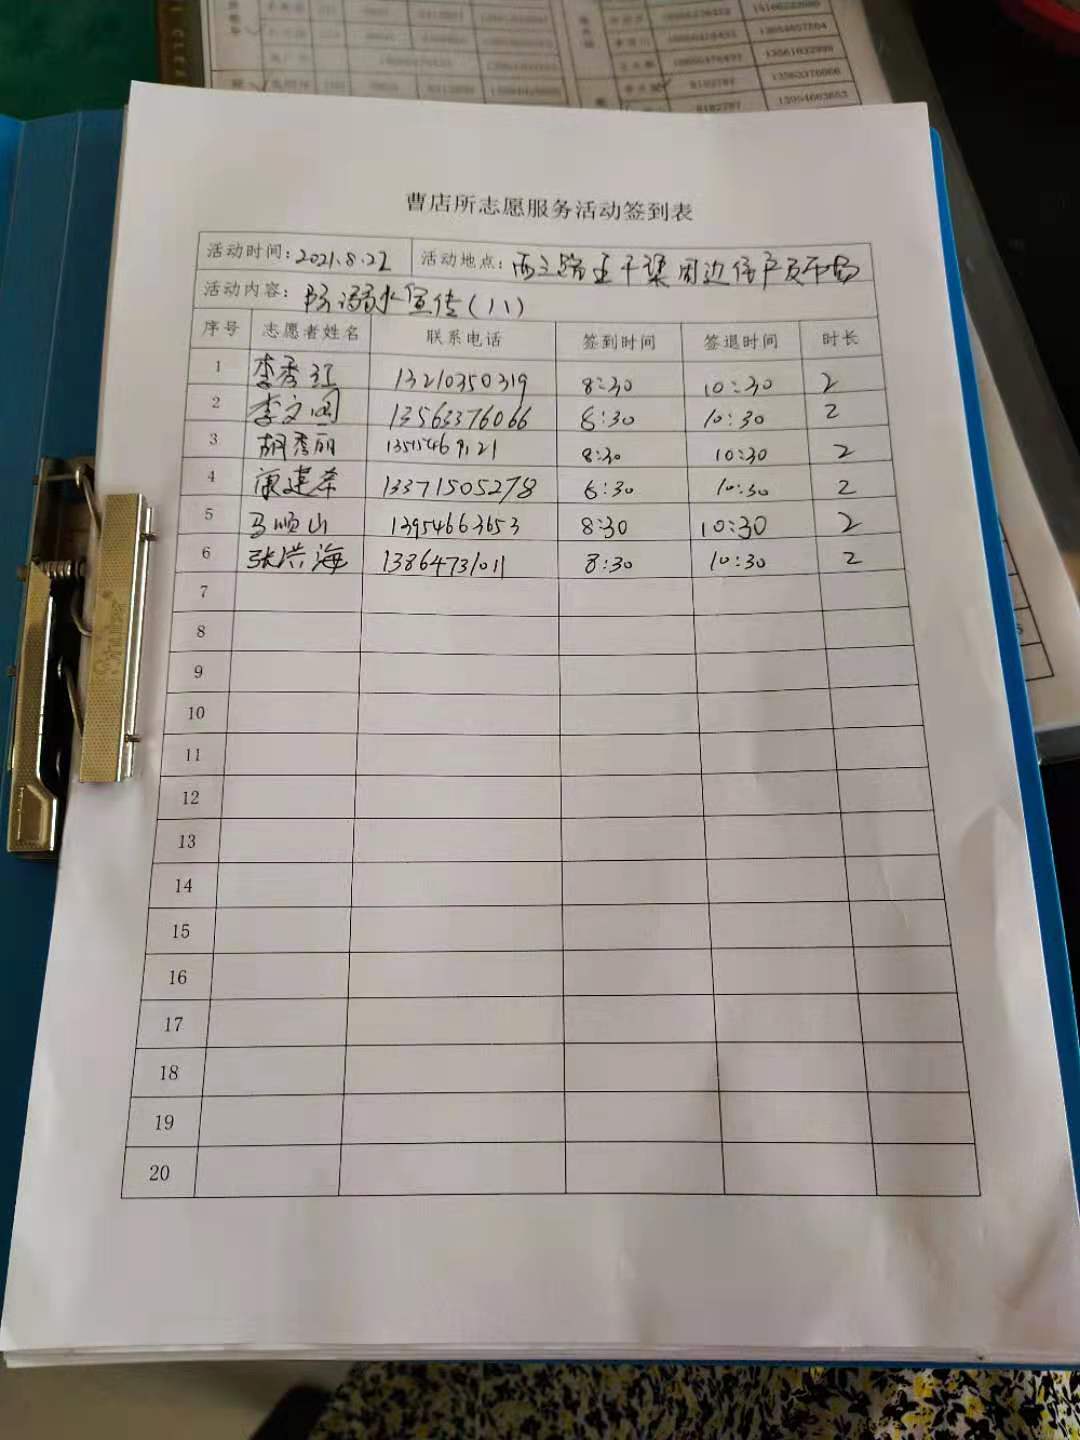 曹店所志愿服务活动签到表
活动时间: 2021.8.22 活动地点: 西三路五干渠周边住户及
活动内容: 防溺水宣传(八)
序号 志愿者姓名 联系电话 签到时间 签退时间 时长
1 李秀江 13210350319 8:30 10:30 2
2 李文 13563376066 8:30 10:30 2
3 胡秀丽 13515469121 8:30 10:30 2
4 康建 13371505278 8:30 10:30 2
5 马顺山 13954663653 8:30 10:30 2
6 张洪海 13864731011 8:30 10:30 2
7
8
9
10
11
12
13
14
15
16
17
18
19
20